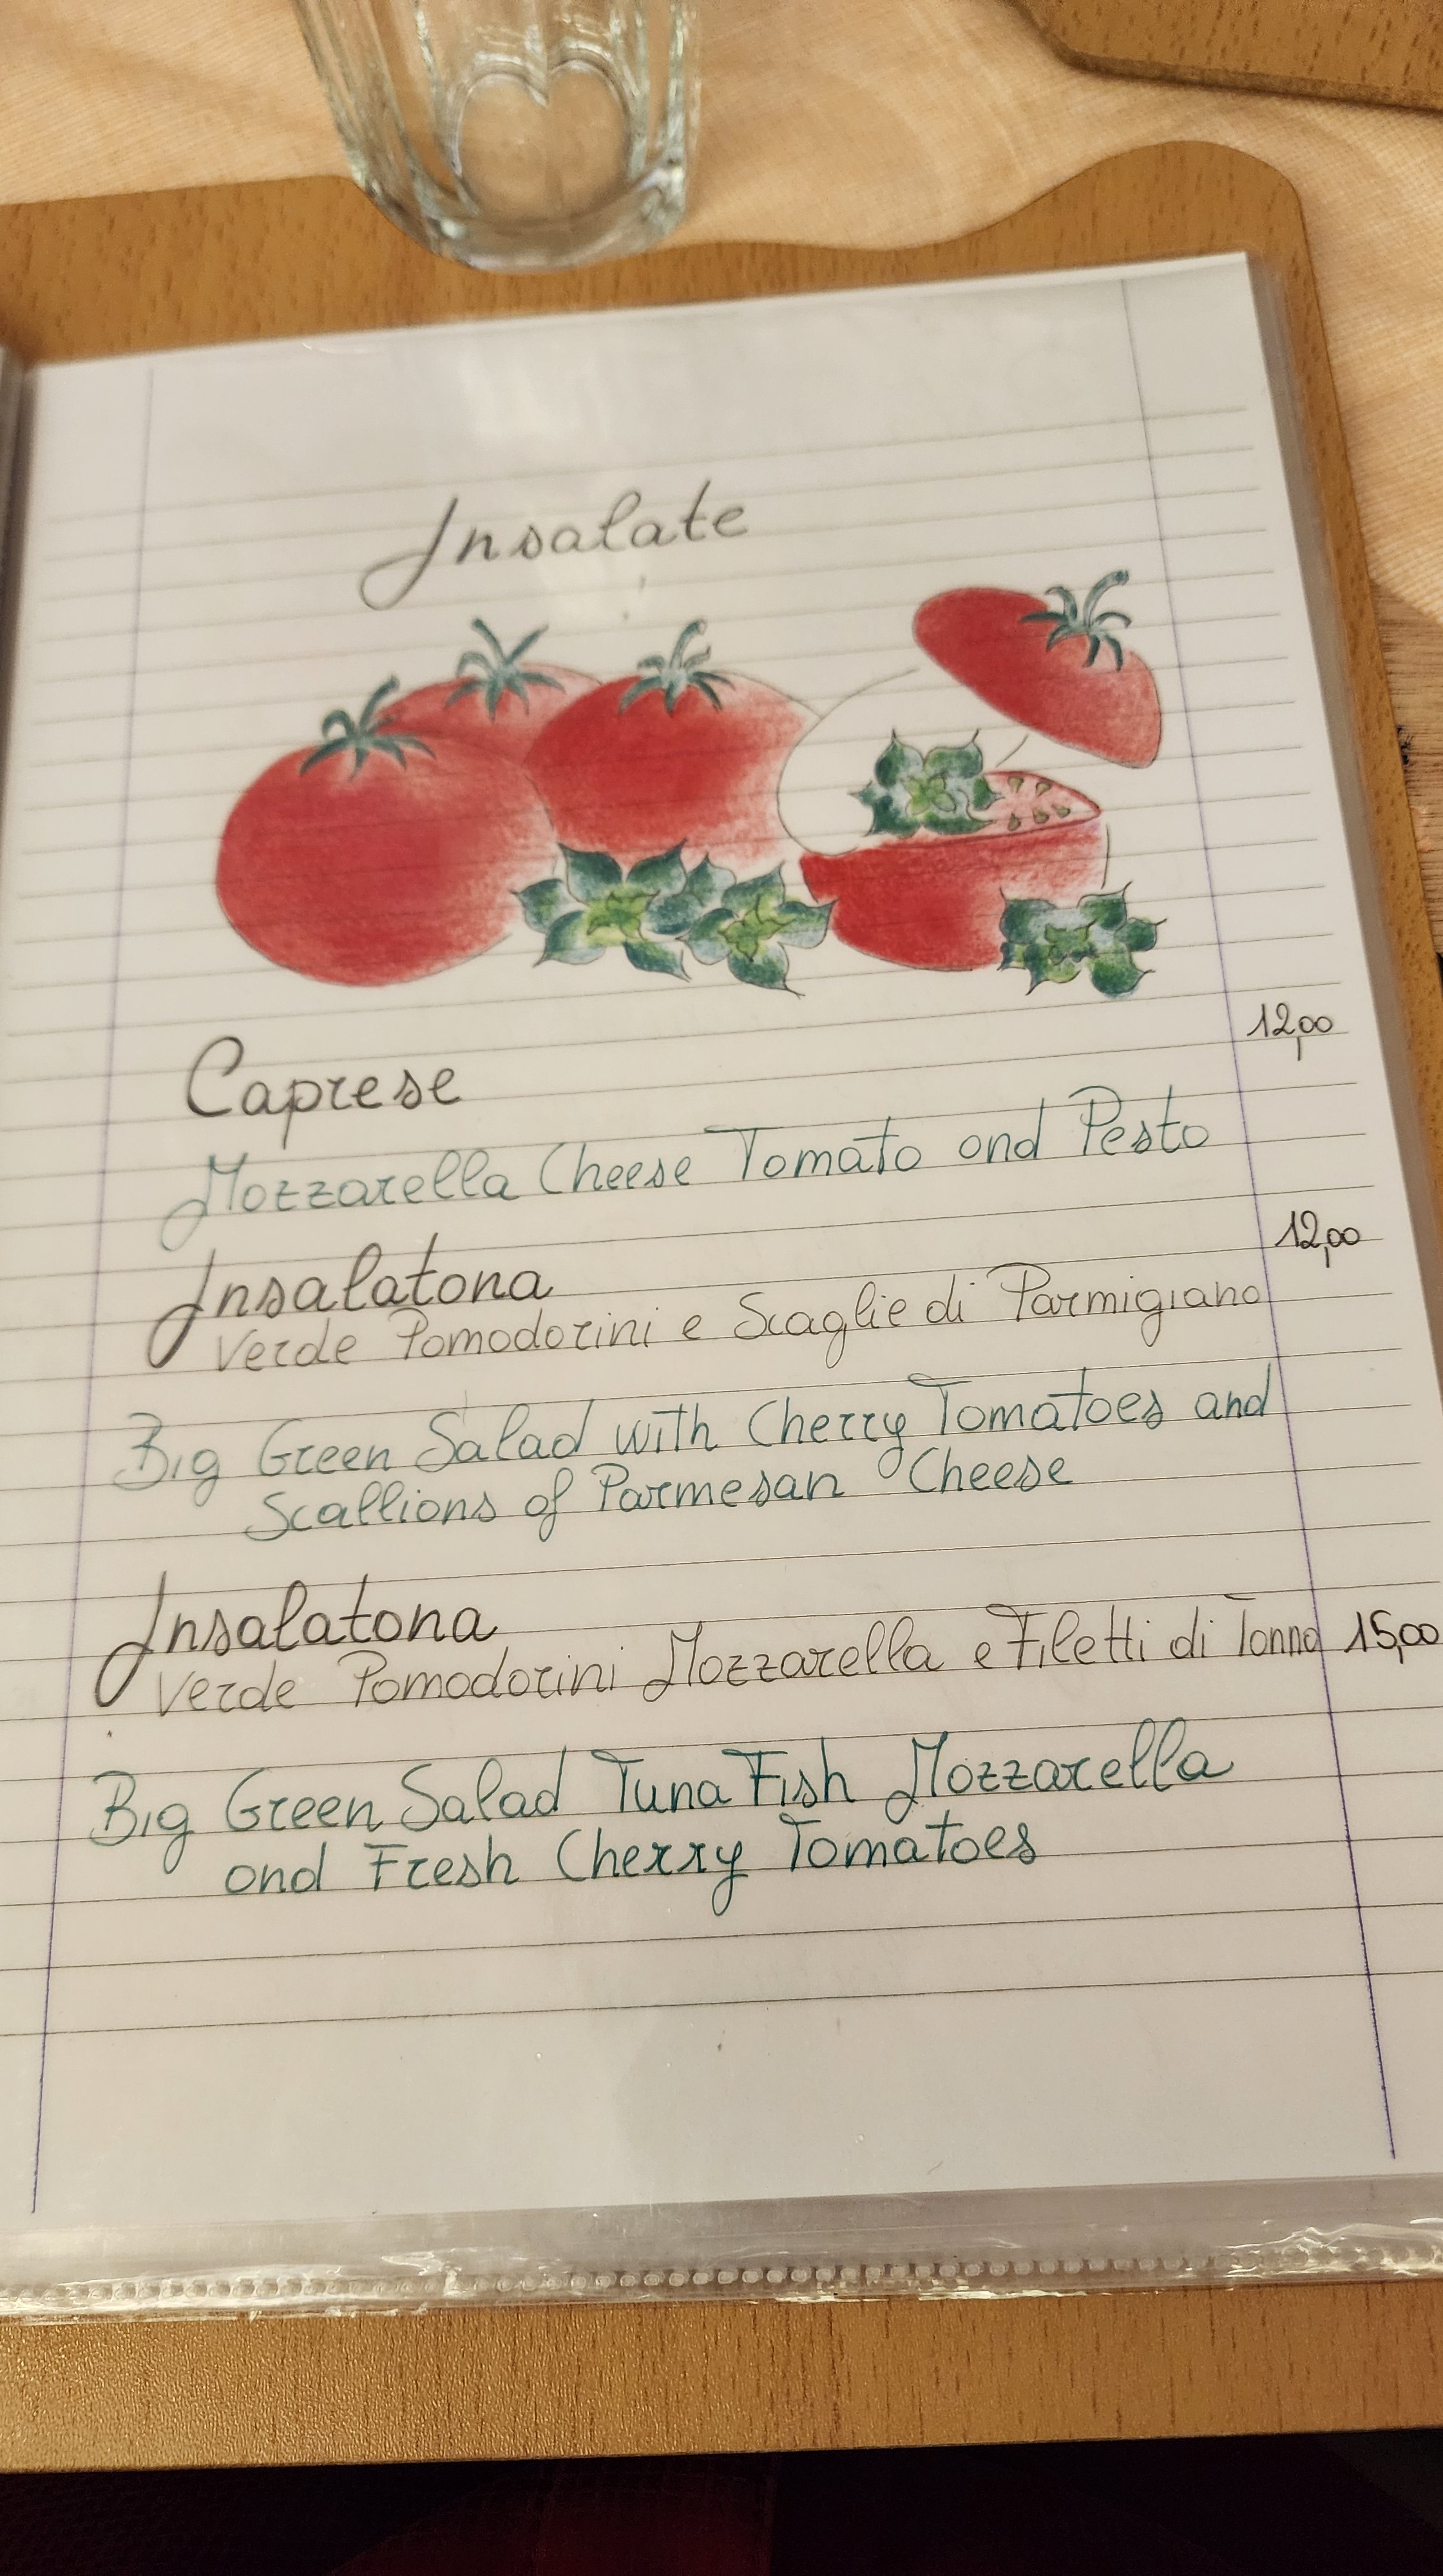 Insalate
Caprese 12,00
Mozzarella Cheese Tomato and Pesto
Insalatona 12,00
Verde Pomodorini e Scaglie di Parmigiano
Big Green Salad with Cherry Tomatoes and
Scallions of Parmesan Cheese
Insalatona
Verde Pomodorini Mozzarella e Filetti di Tonno 15,00
Big Green Salad Tuna Fish Mozzarella
and Fresh Cherry Tomatoes